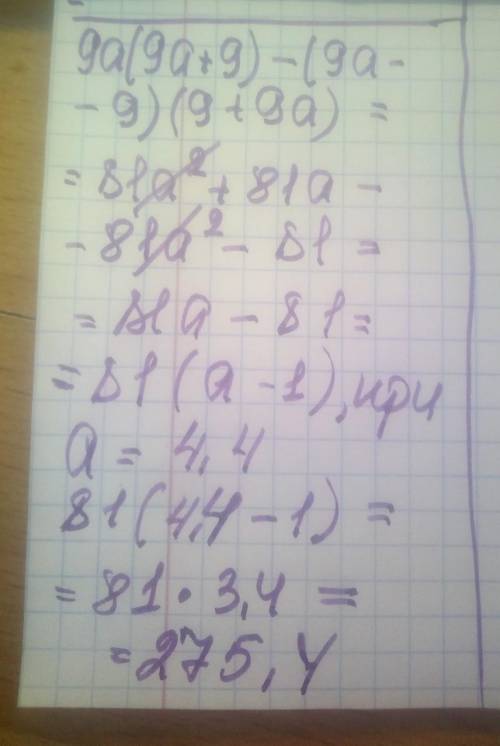 9a(9a+9)-(9a-
-9)(9+9a) =
= 81a² + 81a -
- 81a² - 81 =
= 81a - 81 =
= 81(a-1), при
a = 4,4
81(4,4-1) =
= 81·3,4 =
= 275,4